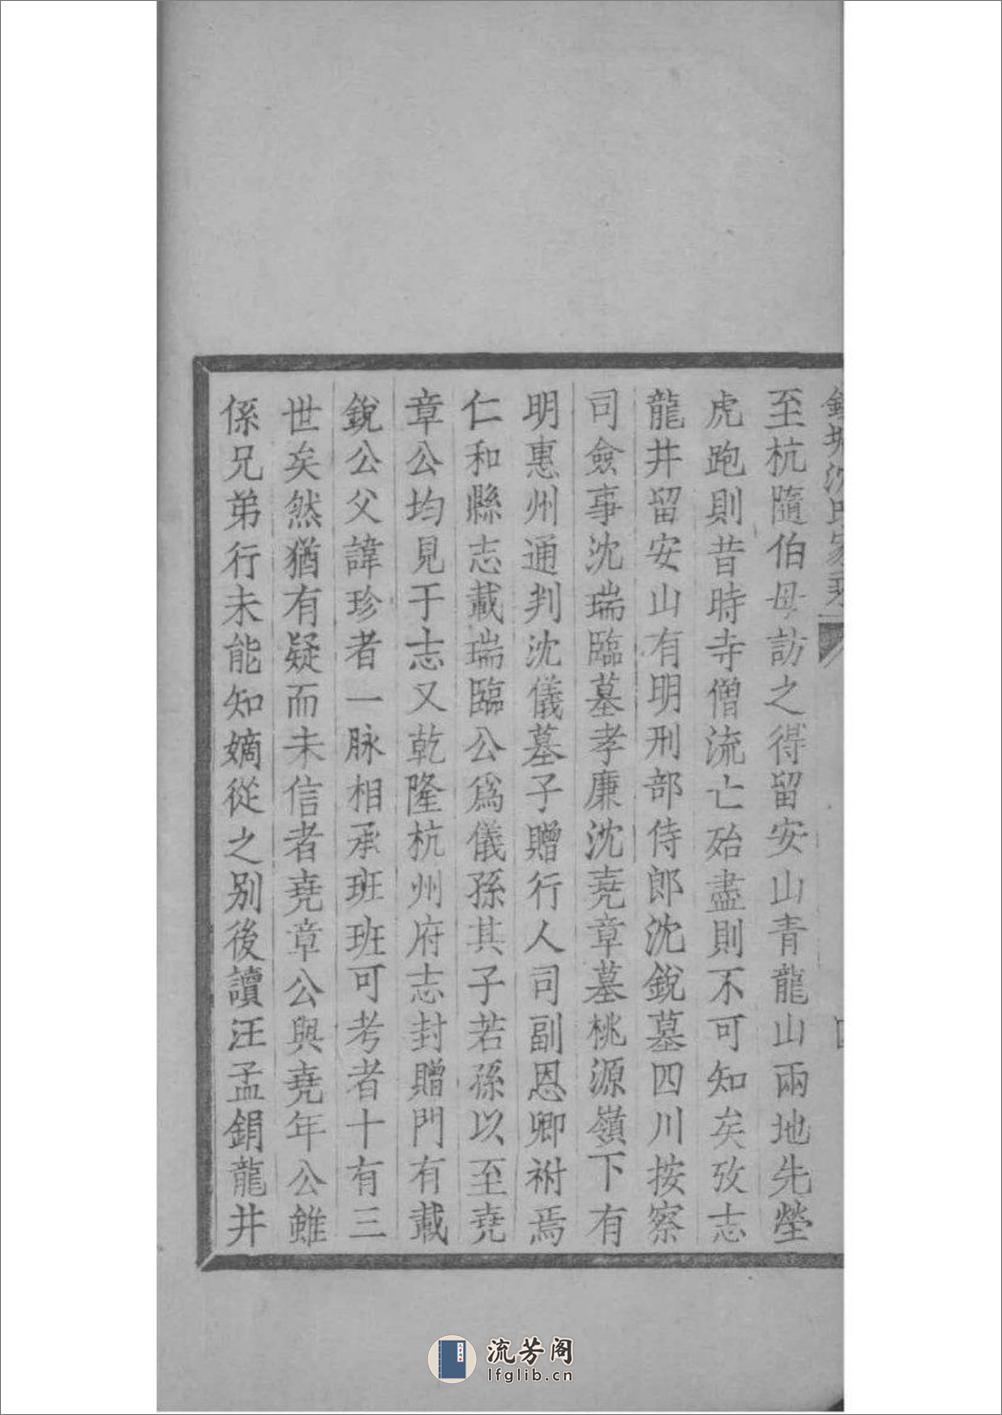 至杭隨伯母訪之得留安山青龍山兩地先塋
虎跑則昔時寺僧流亡殆盡則不可知矣攷志
龍井留安山有明刑部侍郎沈銳墓四川按察
司僉事沈瑞臨墓孝廉沈堯章墓桃源嶺下有
明惠州通判沈儀墓子贈行人司副恩卿祔焉
仁和縣志載瑞臨公爲儀孫其子若孫以至堯
章公均見于志又乾隆杭州府志封贈門有載
銳公父諱珍者一脉相承班班可考者十有三
世矣然猶有疑而未信者堯章公與堯年公雖
係兄弟行未能知嫡從之別後讀汪孟鋗龍井
流芳阁
lfglib.cn